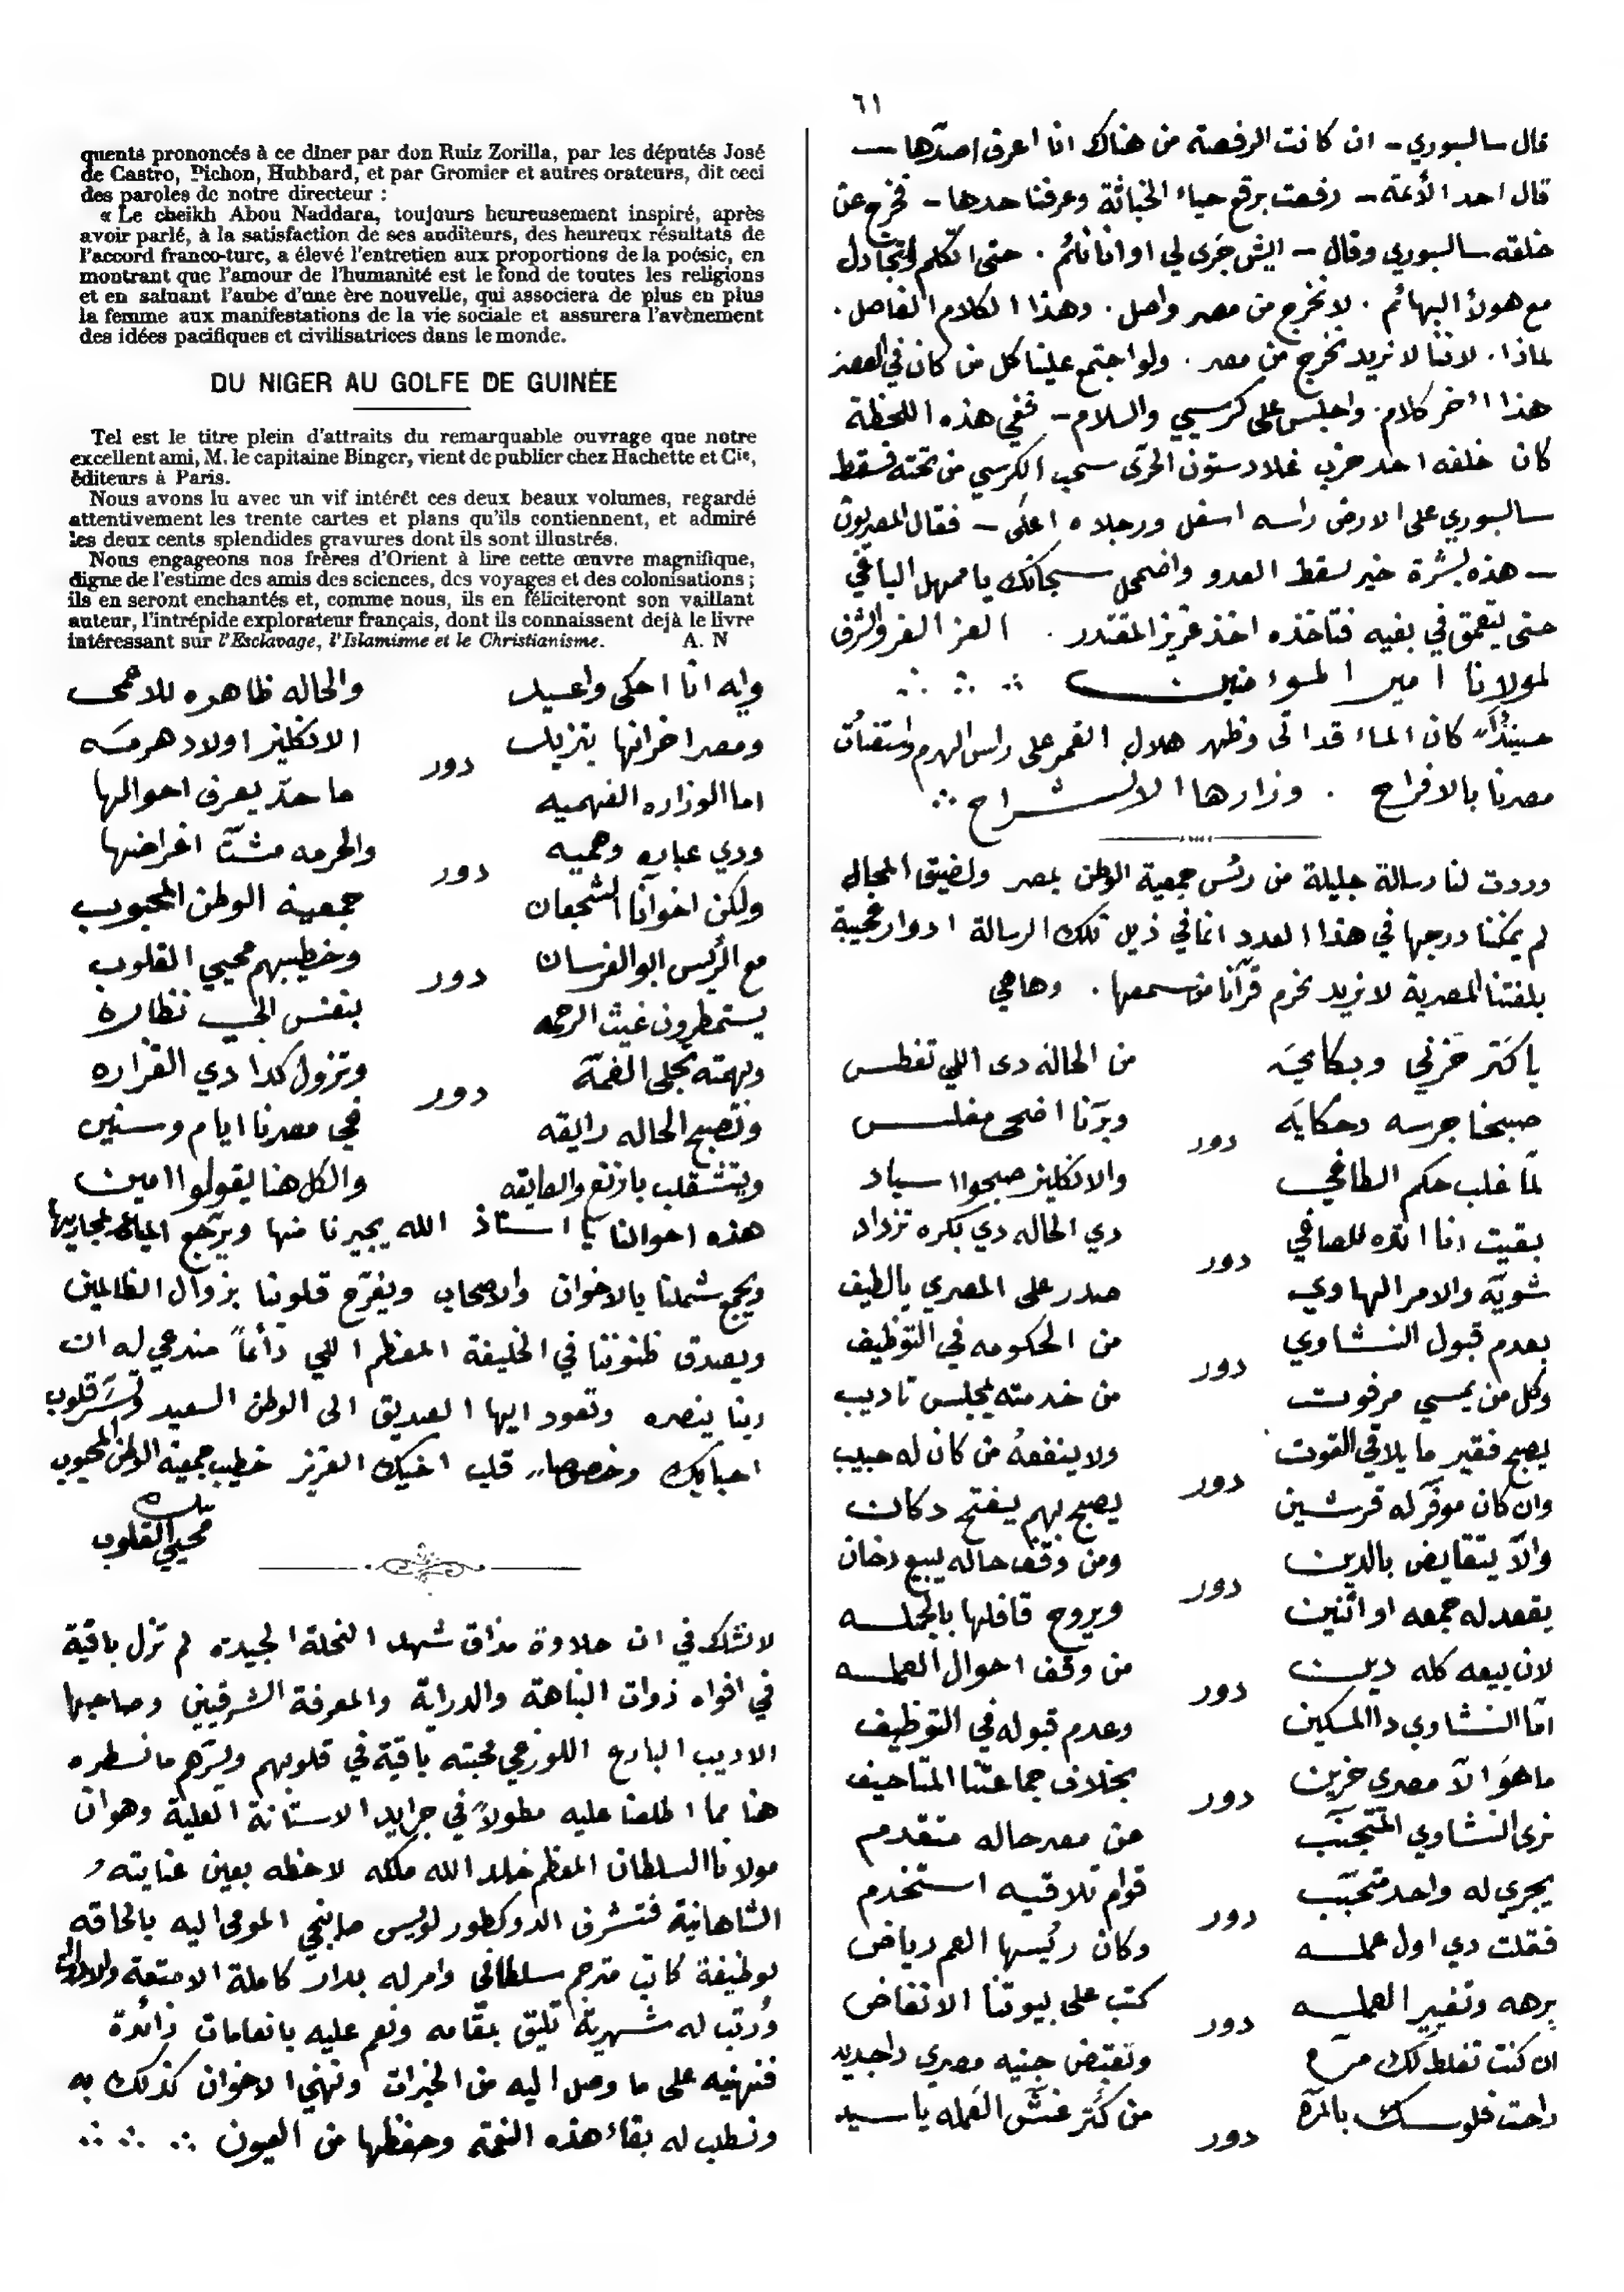 ٦١
قال سالسبوري – ان كانت الرفصة من هناك انا اعرف اصدّها –
قال احد الأئمة – رفعت برقع حياء الخباثة وعرفنا حدها – فخرج عن
خلقه سالسبوري وقال – ايش جرى لي او انا نائم . حتى اتكلم واتجادل
مع هولاء البهائم . لا نخرج من مصر واصل . وهذا الكلام الفاصل .
لماذا . لاننا لا نريد نخرج من مصر . ولو اجتمع علينا كل من كان في العصر
هذا اخر كلام . واجلس على كرسيي والسلام – ففي هذه اللحظة
كان خلفه احد حزب غلادستون الحرّى سحب الكرسي من تحته فسقط
سالسبوري على الارض راسه اسفل ورجلاه اعلى – فقال المصريون
– هذه بشرة خير سقط العدو واضمحل سبحانك يا ممهل الباغي
حتى يتعمق في بغيه فتاخذه اخذ عزيز المقتدر . العز النصر والشرف
لمولانا امير المومنين
حينئذٍ كان الماء قد اتى وظهر هلال القمر على راس الهرم واستضأت
مصرنا بالافراح . وزارها الانشراح
وردت لنا رسالة جليلة من رئس جمعية الوطن بمصر ولضيق المجال
لم يمكننا درجها في هذا العدد انما في ذيل تلك الرسالة ادوار عجيبة
بلغتنا المصرية لا نريد نحرم قرآنا من سمعها . وها هي
يا كتر حزني وبكايه من الحاله دى اللي تفطس
صبحنا جرسه وحكايه وبرّنا اضحى مفلس
دور
لمّا غلب حكم الطاغي والانكليز صبحوا اسياد
بقيت انا اندّه للصاغي دي الحاله دي بكره تزداد
دور
شويّه والامر الهاوي صدر على المصري يا لطيف
بعدم قبول النشاوي من الحكومه في التوظيف
دور
وكل من يمسي مرفوت من خدمته بمجلس تاديب
يصبح فقير ما يلاقي القوت ولا ينفعهُ من كان له حبيب
دور
وان كان موفّر له قرشين يصبح بهم يفتح دكان
والاّ يتقايض بالدين ومن وقف حاله يبيع دخان
دور
يقعد له جمعه او اثنين ويروح قافلها بالجمله
لان بيعه كله دين من وقف احوال العمله
دور
امّا النشاوي دا المسكين وعدم قبوله في التوظيف
ما هوَ الاّ مصري حزين بخلاف جماعتنا المتاحيف
دور
نرى النشاوي المتجنّب عن مصر حاله متقدم
يجري له واحد متحبّب قوام تلاقيه استخدم
دور
فقلت دي اول عمله وكان رئيسها العم رياض
برهه وتغيير العمله كتب على بيوتنا الانقاض
دور
ان كنت تغلط لك مرّه وتقبض جنيه مصري واجديد
راحت فلوسك بالمرّه من كُتر غشّ العمله يا سيد
دور
quents prononcés à ce dîner par don Ruiz Zorilla, par les députés José
de Castro, Pichon, Hubbard, et par Gromier et autres orateurs, dit ceci
des paroles de notre directeur :
« Le cheikh Abou Naddara, toujours heureusement inspiré, après
avoir parlé, à la satisfaction de ses auditeurs, des heureux résultats de
l'accord franco-turc, a élevé l'entretien aux proportions de la poésie, en
montrant que l'amour de l'humanité est le fond de toutes les religions
et en saluant l'aube d'une ère nouvelle, qui associera de plus en plus
la femme aux manifestations de la vie sociale et assurera l'avènement
des idées pacifiques et civilisatrices dans le monde.
DU NIGER AU GOLFE DE GUINÉE
Tel est le titre plein d'attraits du remarquable ouvrage que notre
excellent ami, M. le capitaine Binger, vient de publier chez Hachette et Cie,
éditeurs à Paris.
Nous avons lu avec un vif intérêt ces deux beaux volumes, regardé
attentivement les trente cartes et plans qu'ils contiennent, et admiré
les deux cents splendides gravures dont ils sont illustrés.
Nous engageons nos frères d'Orient à lire cette œuvre magnifique,
digne de l'estime des amis des sciences, des voyages et des colonisations ;
ils en seront enchantés et, comme nous, ils en féliciteront son vaillant
auteur, l'intrépide explorateur français, dont ils connaissent dejà le livre
intéressant sur l'Esclavage, l'Islamisme et le Christianisme. A. N
وايه انا احكى واعيد والحاله ظاهره للاعمى
ومصر احزانها بتزيد الانكليز اولاد هرمه
دور
اما الوزاره الفهميه ما حدّ يعرف احوالها
ودي عباره وهميه والحرمه مشتّا اغراضها
دور
ولكن اخوآنّا الشجعان جمعية الوطن المحبوب
مع الرّئيس ابو الفرسان وخطيبهم محيي القلوب
دور
يستمطرون غيث الرحمه بنفس الشيخ نظاره
وبهمته تجلى الغمّة وتزول كدا دي القزاره
دور
وتصبح الحاله رايقه في مصرنا ايام وسنين
ويتشقلب بارنع والعايقه والكل هنا يقولوا امين
هذه احوالنا يا استاذ الله يجيرنا منها ويرّجع المياه لمجاريها
ويجمع شملنا بالاخوان والاصحاب ويفرّح قلوبنا بزوال الظالمين
ويصدق ظنوننا في الخليفة المعظم اللي دائماً مندعي له ان
ربنا ينصره وتعود ايها الصديق الى الوطن السعيد وتسرّ قلوب
احبابك وخصوصاً قلب اخيك العزيز خطيب جمعية الوطن المحبوب
محيي القلوب
لا نشك في ان حلاوة مذاق شهد النحلة الجيدة لم تزل باقية
في افواه ذوات النباهة والدراية والمعرفة الشرقيين وصاحبها
الاديب البارع اللوزعي محبته باقية في قلوبهم ويسّرهم ما نسطره
هنا مما اطلعنا عليه مطولاً في جرايد الاستانة العلية وهو ان
مولانا السلطان المعظم خلد الله ملكه لاحظه بعين عنايته
الشاهانية فتشرف الدوكطور لويس صابنجي المومى اليه بالحاقه
بوظيفة كاتب مترجم سلطانى وامر له بدار كاملة الامتعة
ورُتب له شهرية تليق بمقامه ونعم عليه بانعامات زائدة
فنهنيه على ما وصل اليه من الخيرات ونهني الاخوان كذلك به
ونطلب له بقاء هذه النعمة وحفظها من العيون